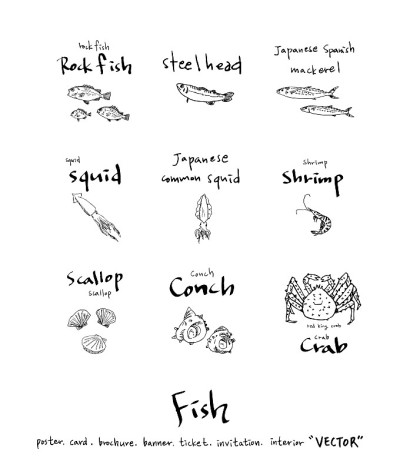 rockfish
Rockfish
steelhead
Japanese Spanish
mackerel
squid
squid
Japanese
common squid
shrimp
Shrimp
Scallop
scallop
Conch
Conch
red king crab
crab
Crab
Fish
poster. card. brochure. banner. ticket. invitation. interior "VECTOR"